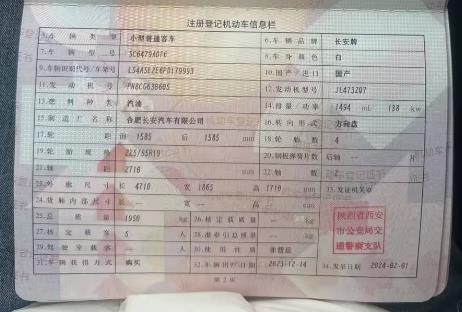 注册登记机动车信息栏
5.车辆类型 小型普通客车 6.车辆品牌 长安牌
7.车辆型号 8.车身颜色 白
9.车辆识别代号/车架号 10.国产/进口 国产
11.发动机号 12.发动机型号 JL473ZQ7
13.燃料种类 汽油 14.排量/功率 1494 ml/ 138 kw
15.制造厂名称 合肥长安汽车有限公司 16.转向形式 方向盘
17.轮距 前 1585 后 1585 mm 18.轮胎数 4
19.轮胎规格 225/55R19 20.钢板弹簧片数 后轴 -- 片
21.轴距 2710 mm 22.轴数 2
23.外廓尺寸 长 4710 宽 1865 高 1719 mm 33.发证机关章
24.货厢内部尺寸 长 -- 宽 -- 高 -- mm
25.总质量 1950 kg 26.核定载质量 -- kg
27.核定载客 5 人 28.准牵引总质量 -- kg
29.驾驶室载客 -- 人 30.使用性质 非营运
31.车辆获得方式 购买 32.车辆出厂日期 2023-12-14 34.发证日期 2024-02-01
陕西省西安
市公安局交
通警察支队
第 2 页